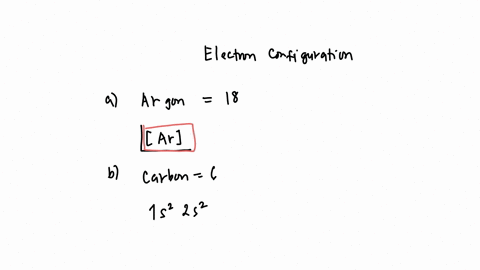 Electron Configuration
a) Argon = 18
[Ar]
b) Carbon = 6
1s² 2s²